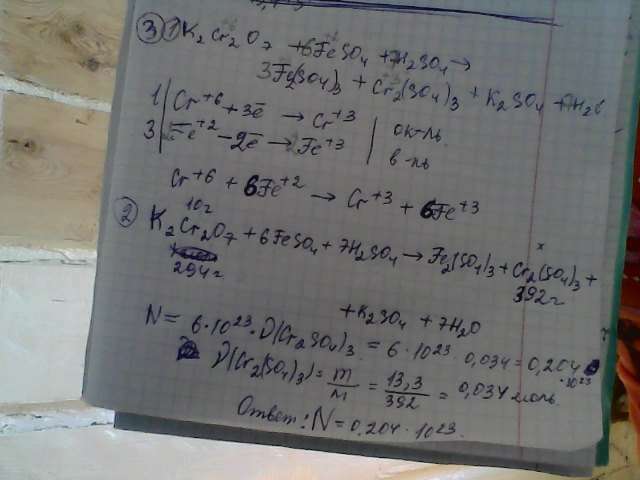 ③ ① K₂Cr₂O₇ + 6FeSO₄ + 7H₂SO₄ →
3Fe₂(SO₄)₃ + Cr₂(SO₄)₃ + K₂SO₄ + 7H₂O
1 | Cr⁺⁶ + 3ē → Cr⁺³ | ок-ль
3 | Fe⁺² - 2ē → Fe⁺³ | в-ль
Cr⁺⁶ + 6Fe⁺² → Cr⁺³ + 6Fe⁺³
10г x
② K₂Cr₂O₇ + 6FeSO₄ + 7H₂SO₄ → Fe₂(SO₄)₃ + Cr₂(SO₄)₃ +
294г 392г
+ K₂SO₄ + 7H₂O
N = 6·10²³·D(Cr₂SO₄)₃ = 6·10²³·0,034 = 0,204
·10²³
D(Cr₂(SO₄)₃) = m/M = 13,3/392 = 0,034 моль.
Ответ: N = 0,204·10²³.